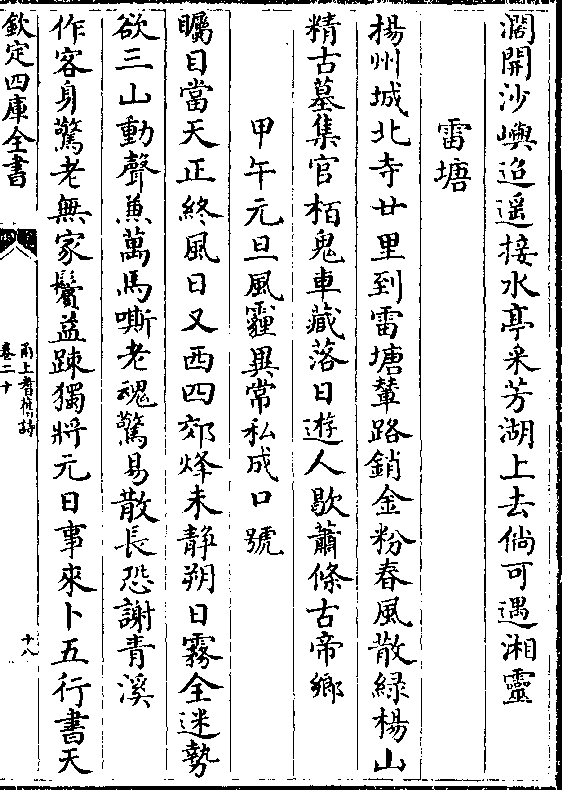 濶開沙嶼迢遥接水亭采芳湖上去倘可遇湘靈
雷塘
揚州城北寺廿里到雷塘輦路銷金粉春風散緑楊山
精古墓集官栢鬼車藏落日遊人歇蕭條古帝鄉
甲午元旦風霾異常私成口號
矚目當天正終風日又西四郊烽未靜朔日霧全迷勢
欲三山動聲兼萬馬嘶老魂驚易散長恐謝青溪
作客身驚老無家鬢益踈獨將元日事來卜五行書天
欽定四庫全書
甬上耆舊詩
卷二十
十八